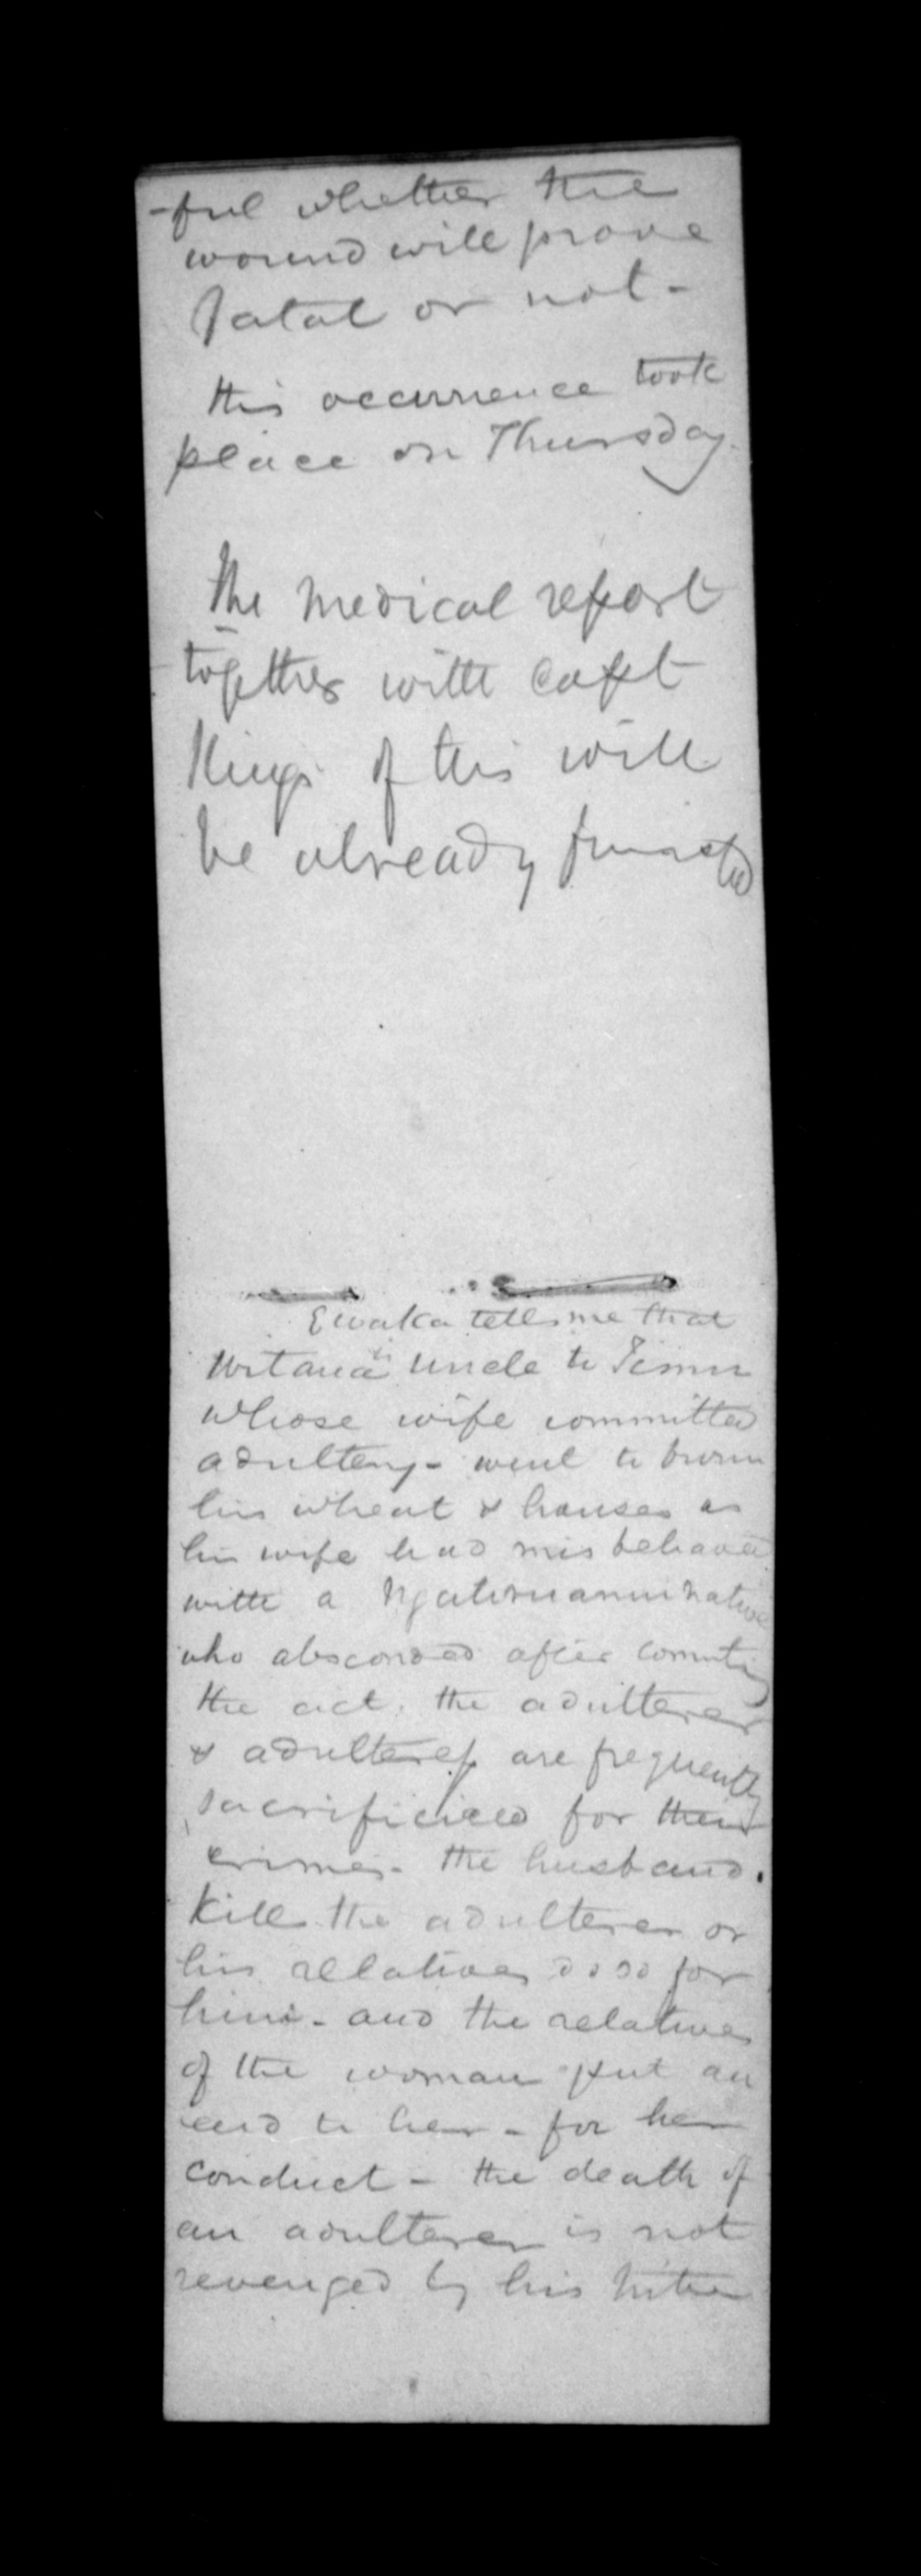 -ful whether the
wound will prove
fatal or not -
this occurrence took
place on Thursday.
The medical report
together with Capt
Kings of this will
be already furnished
Ewaka tells me that
Witana uncle to Timu
whose wife committed
adultery - went to burn
his wheat & houses as
his wife had misbehaved
with a Ngatiruanui native
who absconded after commiting
the act. the adulterer
& adulteress are frequently
sacrificed for their
crimes - the husband
kills the adulterer or
his relatives do so for
him - and the relatives
of the woman put an
end to her - for her
conduct - the death of
an adulterer is not
revenged by his